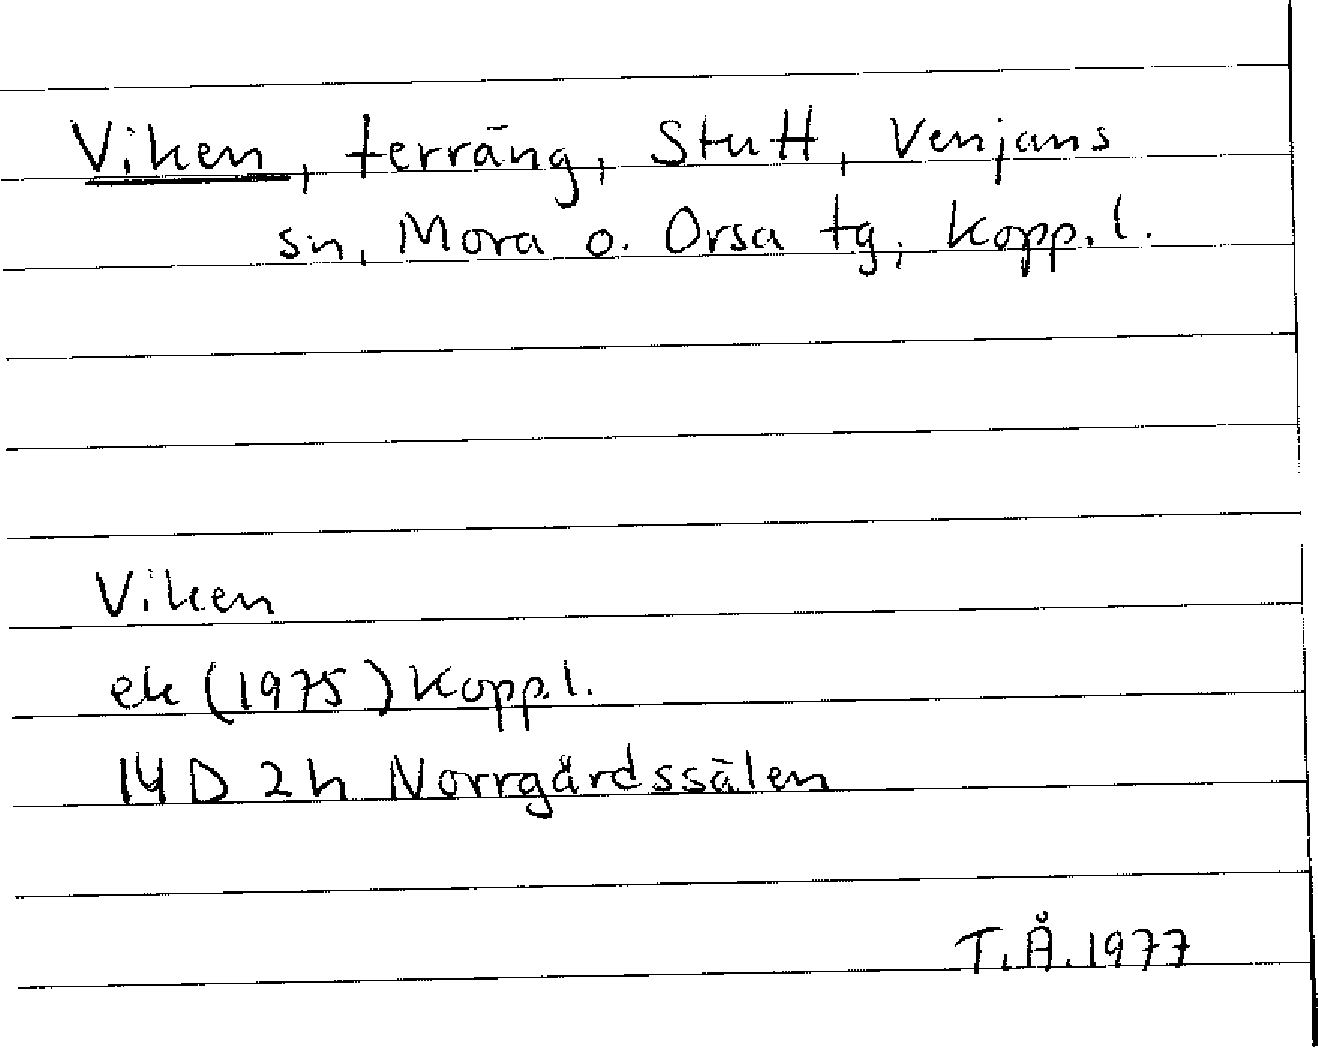 Viken, terräng, Stutt, Venjans
sn, Mora o. Orsa tg, Kopp. l.
Viken
ek (1975) Kopp. l.
14 D 2 h Norrgårdssälen
T. Å. 1977